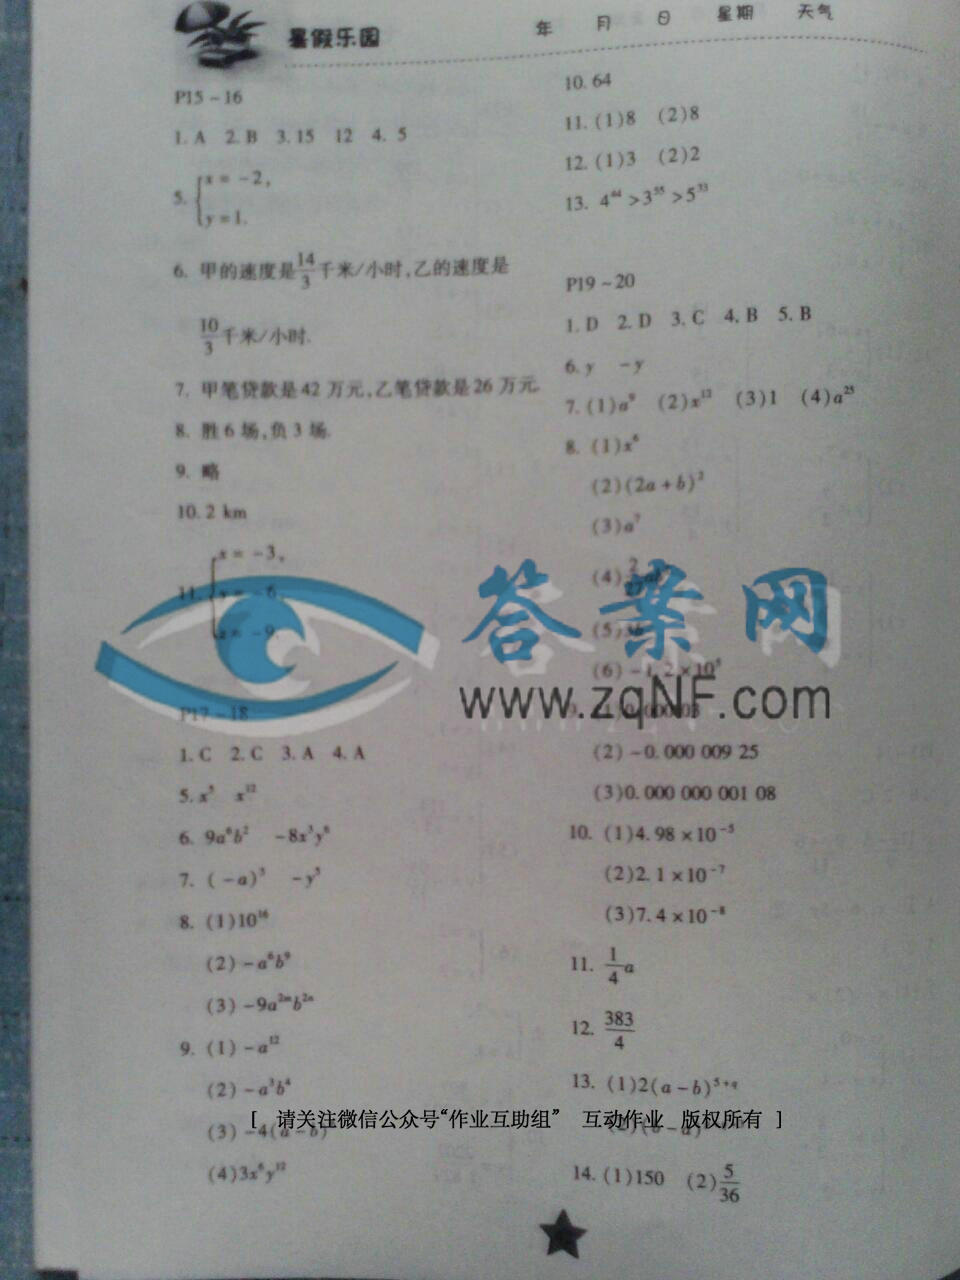 暑假乐园 年 月 日 星期 天气
P15－16
1. A 2. B 3. 15 12 4. 5
5. { x = －2,
y = 1.
6. 甲的速度是14/3千米/小时,乙的速度是
10/3千米/小时.
7. 甲笔贷款是42万元,乙笔贷款是26万元.
8. 胜6场,负3场.
9. 略
10. 2 km
11. { x = －3,
y = －6,
z = －9.
P17－18
1. C 2. C 3. A 4. A
5. x⁵ x¹²
6. 9a⁶b² －8x³y⁶
7. (－a)³ －y⁵
8. (1)10¹⁶
(2)－a⁶b⁹
(3)－9a²ᵐb²ⁿ
9. (1)－a¹²
(2)－a³b⁴
(3)－4(a－b)
(4)3x⁶y¹²
10. 64
11. (1)8 (2)8
12. (1)3 (2)2
13. 4⁴⁴＞3⁵⁵＞5³³
P19－20
1. D 2. D 3. C 4. B 5. B
6. y －y
7. (1)a⁹ (2)x¹² (3)1 (4)a²⁵
8. (1)x⁶
(2)(2a＋b)²
(3)a⁷
(4)2/27
(5)36
(6)－1.2×10⁵
(2)－0.000 009 25
(3)0.000 000 001 08
10. (1)4.98×10⁻⁵
(2)2.1×10⁻⁷
(3)7.4×10⁻⁸
11. 1/4a
12. 383/4
13. (1)2(a－b)⁵⁺q
14. (1)150 (2)5/36
答案网
www.zqNF.com
[ 请关注微信公众号“作业互助组” 互动作业 版权所有 ]